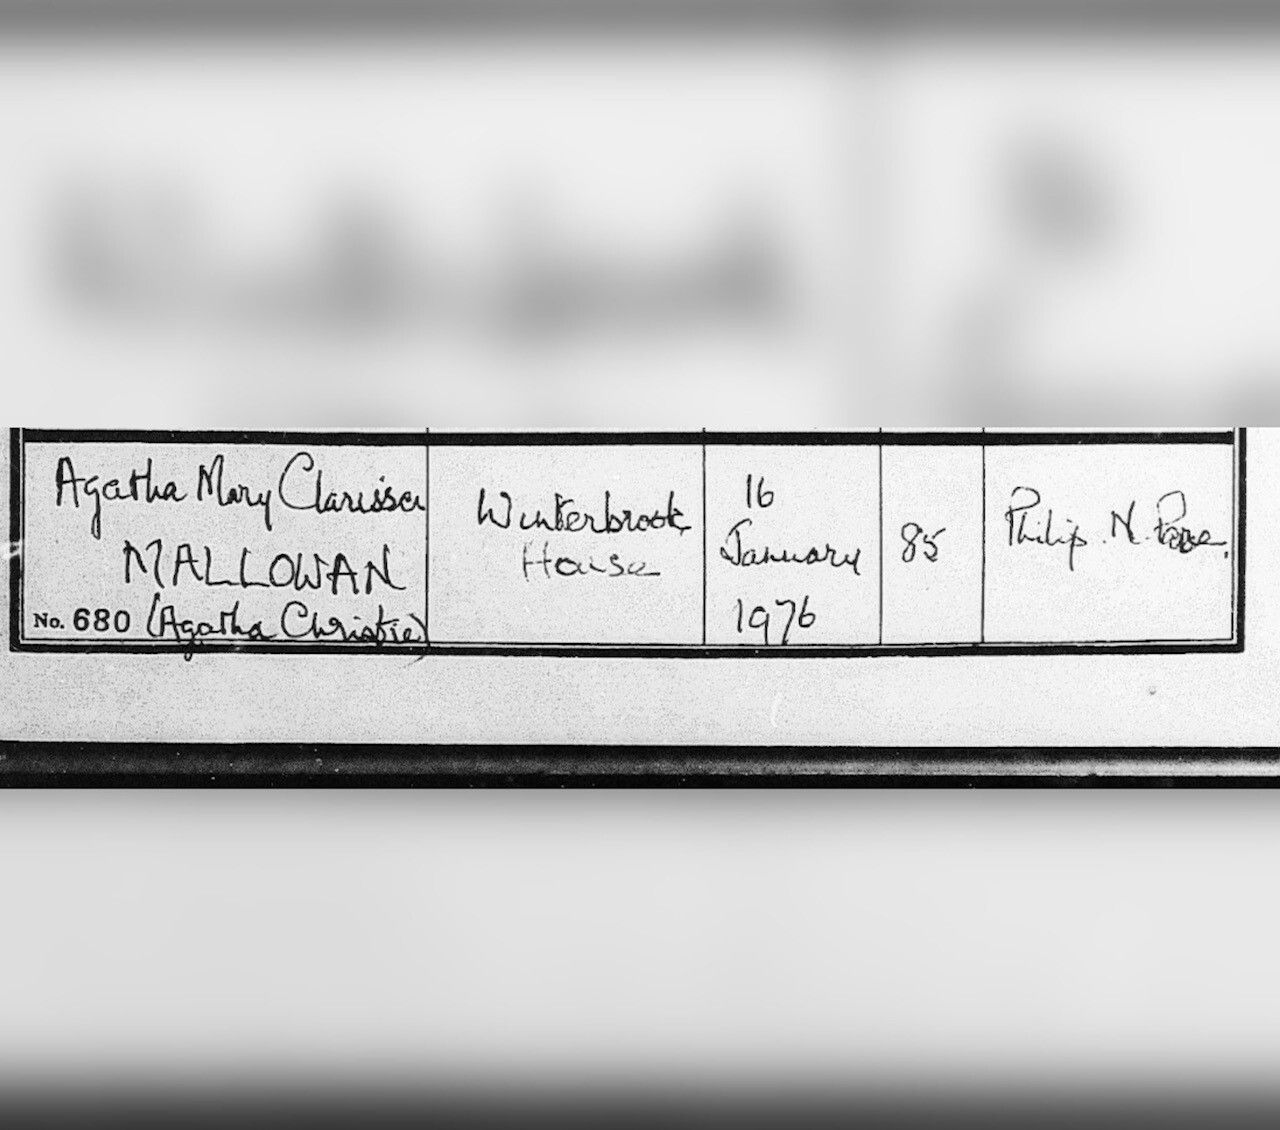 Agatha Mary Clarissa
MALLOWAN
No. 680 (Agatha Christie)
Winterbrook
House
16
January
1976
85
Philip N.